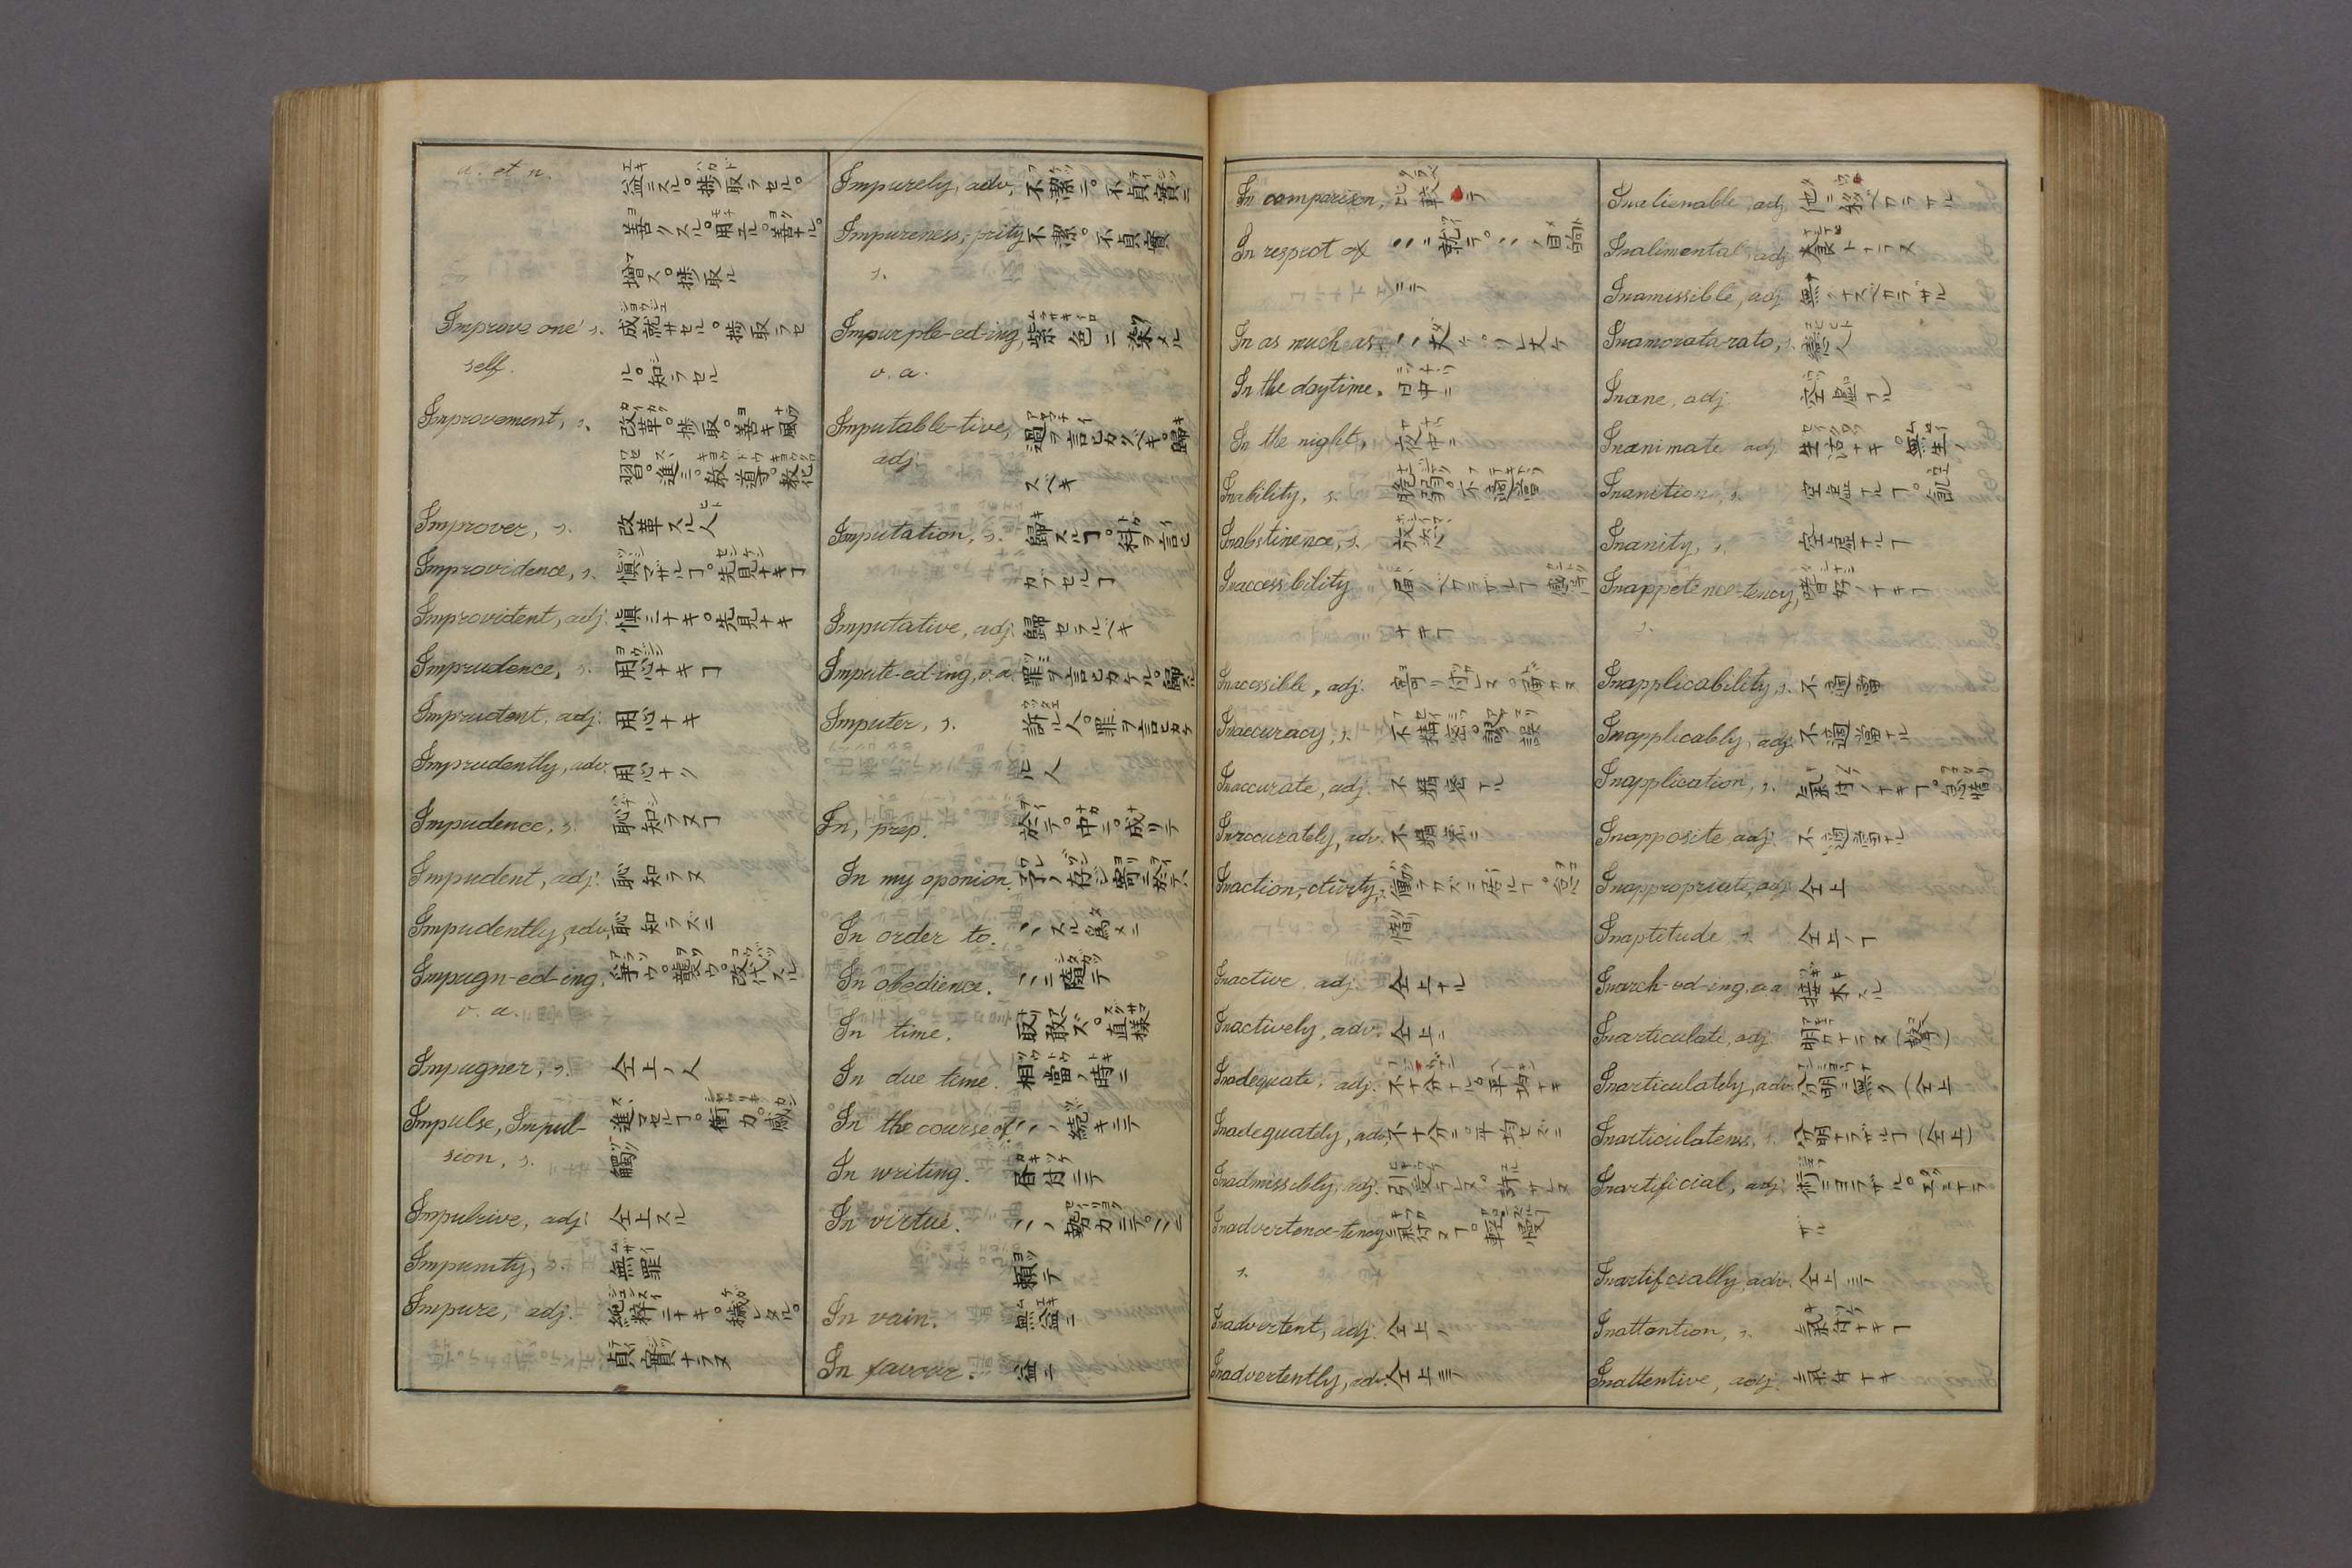 a. et n. 益ニスル。捗取ラセル。
善クスル。用ヰル。善ナル。
増ス。捗取ル
Improve one's. 成就サセル。捗取ラセ
self. ル。知ラセル
Improvement, s. 改革。捗取。善キ風
習。進ミ。教導。教化
Improver, s. 改革スル人
Improvidence, s. 慎マザルヿ。先見ナキヿ
Improvident, adj. 慎ミナキ。先見ナキ
Imprudence, s. 用心ナキヿ
Imprudent, adj. 用心ナキ
Imprudently, adv. 用心ナク
Impudence, s. 恥知ラヌヿ
Impudent, adj. 恥知ラヌ
Impudently, adv. 恥知ラズニ
Impugn-ed-ing, 争ウ。襲ウ。攻伐スル
v. a.
Impugner, s. 仝上ノ人
Impulse, Impul- 進マセルヿ。衝力。感
sion, s. 觸
Impulsive, adj. 仝上スル
Impunity, s. 無罪
Impure, adj. 純粋ニナキ。穢レタル。
貞實ナラヌ
Impurely, adv. 不潔ニ。不貞實ニ
Impureness,-prity 不潔。不貞實
s.
Impurple-ed-ing, 紫色ニ染メル
v. a.
Imputable-tive, 過ヲ言ヒカクベキ。歸
adj. スベキ
Imputation, s. 歸スルヿ。科ヲ言ヒ
カブセルヿ
Imputative, adj. 歸セラルベキ
Impute-ed-ing, v. a. 罪ヲ言ヒカケル。歸スル
Imputer, s. 訴ル人。罪ヲ言ヒカケ
ル人
In, prep. 於テ。中ニ。成リテ
In my oponion. 予ノ存ジ寄ニ於テハ
In order to. 〃スル爲メニ
In obedience. 〃ニ随テ
In time. 取敢ズ。直様
In due time. 相當ノ時ニ
In the course of. 〃ノ続キニテ
In writing. 書付ニテ
In virtue. 〃ノ勢力ニテ。〃ニ
頼テ
In vain. 無益ニ
In favour. 益ニ
In comparison, 比較 ラ
In respect of 〃ニ就テ。〃ノ目的
ニテ
In as much as, 〃丈ケ。リレ丈ケ
In the daytime. 日中ニ
In the night, 夜中ニ
Inability, s. 脆弱。不適當
Inabstinence, s. 放恣
Inaccessibility
ナキヿ
Inaccessible, adj. 寄リ付レヌ。届カヌ
Inaccuracy, s. 不精密。誤謬
Inaccurate, adj. 不精密ナル
Inaccurately, adv. 不精密ニ
Inaction,-ctivity, 働ラカズニ居ルヿ。怠
惰
Inactive, adj. 仝上ナル
Inactively, adv. 仝上ニ
Inadequate, adj. 不十分ナル。平均ナキ
Inadequately, adv. 不十分ニ。平均セズニ
Inadmissibly, adj. 引受ラレヌ。許サレヌ
Inadvertence-tency 氣付ヌヿ。軽慢
s.
Inadvertent, adj. 仝上ノ
Inadvertently, adv. 仝上ニテ
Inalienable, adj. 他ニ移ベカラザル
Inalimental, adj. 養トナラヌ
Inamissible, adj. 無クナスベカラザル
Inamorata-rato, s. 戀人
Inane, adj. 空虚ナル
Inanimate adj. 生活ナキ。無生ノ
Inanition, s. 空虚ナルヿ。飢
Inanity, s. 空虚ナルヿ
Inappetence-tency, 嗜好ノナキヿ
s.
Inapplicability, s. 不適當
Inapplicably, adj. 不適當ナル
Inapplication, s. 氣付ノナキヿ。怠惰
Inapposite, adj. 不適當ナル
Inappropriate, adj. 仝上
Inaptitude, s. 仝上ノヿ
Inarch-ed-ing, v.a. 接木スル
Inarticulate, adj. 明カナラヌ(聲)
Inarticulately, adv. 分明ニ無ク(仝上
Inarticulateness, s. 分明ナラザルヿ(仝上)
Inartificial, adj. 術ニヨラザル。エミナラ
ザル
Inartifcially, adv. 仝上ニテ
Inattention, s. 氣付ケナキヿ
Inattentive, adj. 氣付ナキ